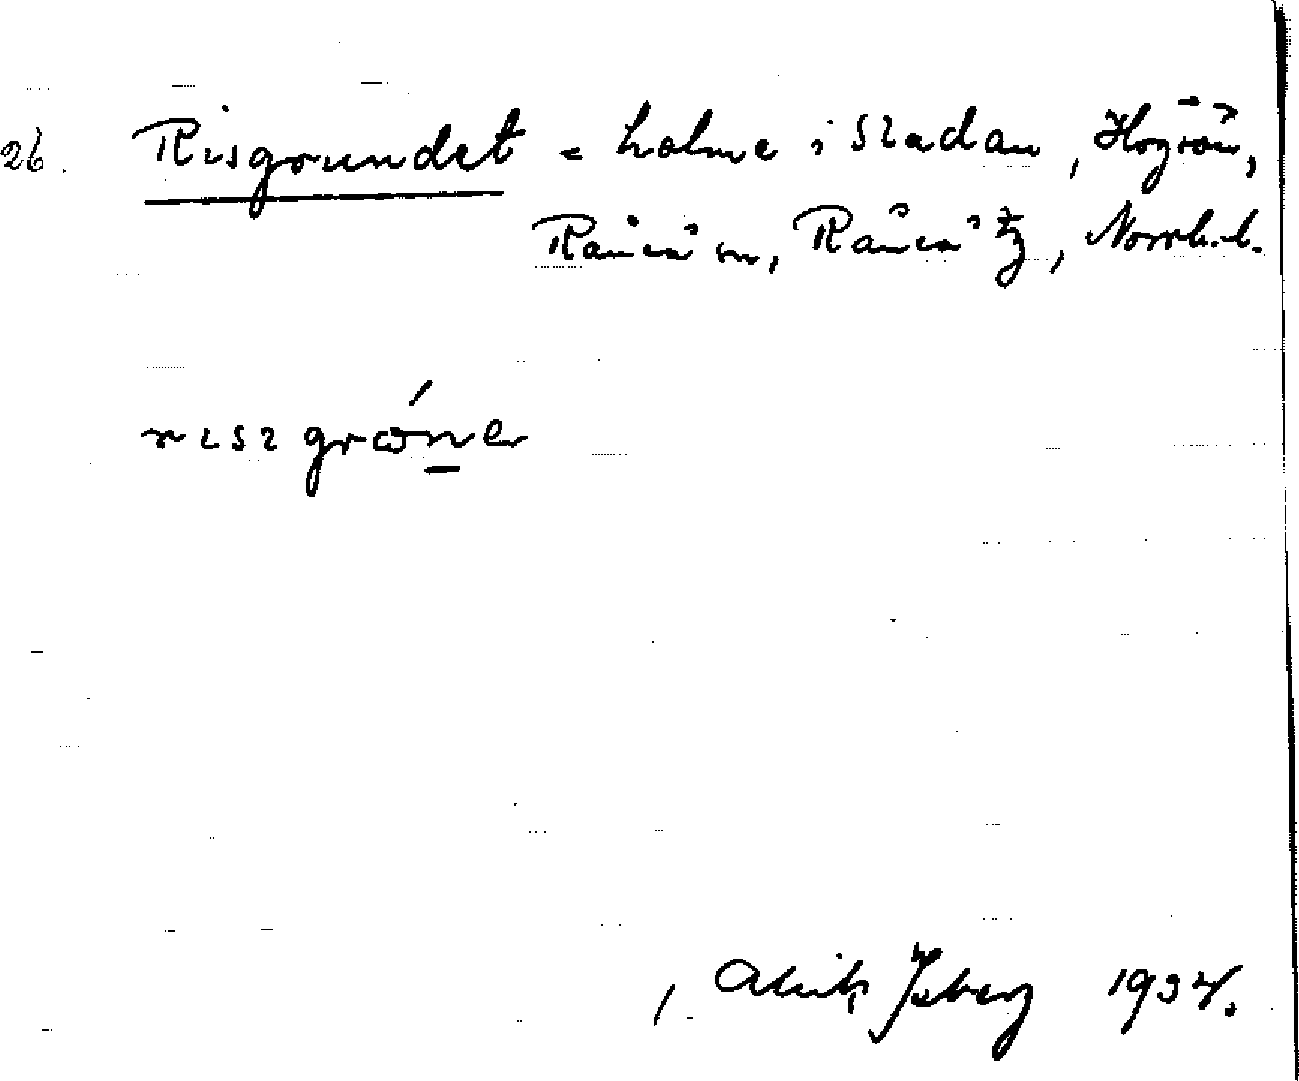 26. Risgrundet = holme i Sladan, Högsön,
Råneå sn, Råneå tg, Norrb. l.
rısgrωńe
Alvik Isberg 1934.